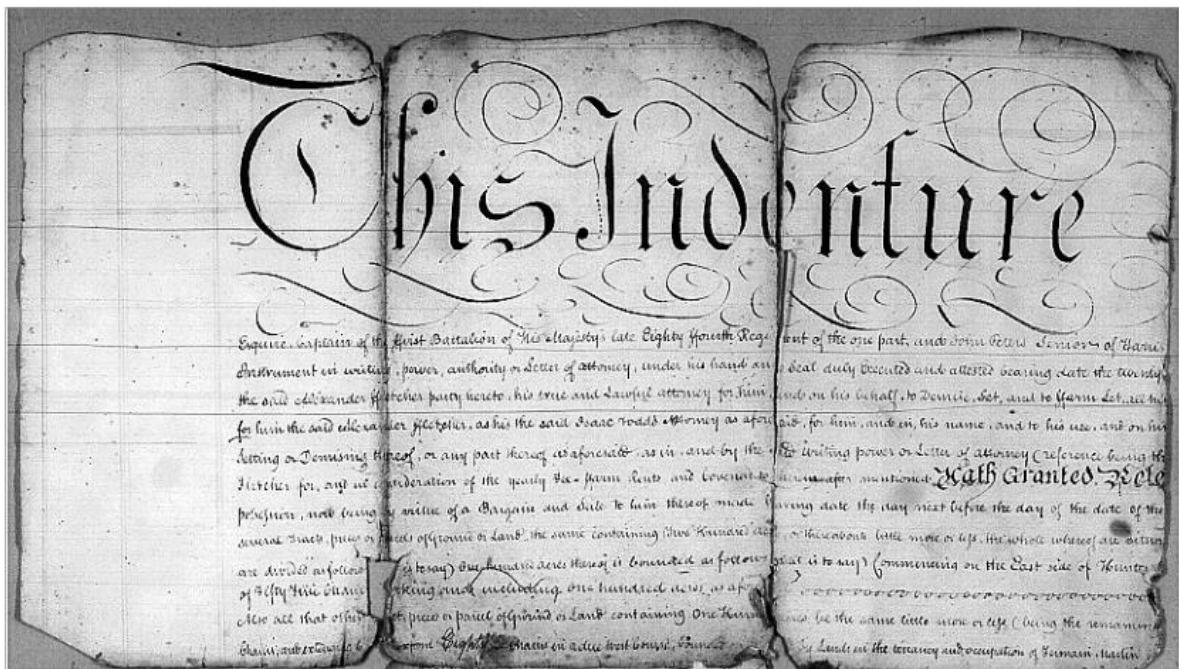 This Indenture
Esquire Captain of the ffirst Battalion of His Majesty's late Eighty ffourth Reg ent of the one part, and John Peters Senior of
Instrument in writing, power, authority or Letter of attorney, under his hand an Seal duly Executed and attested bearing date the twenty
the said Alexander ffletcher party hereto, his true and Lawful attorney for him, and on his behalf, to Demise, Set, and to Farm Let, all
for him the said Alexander ffletcher, as his the said Isaac Todds Attorney as afore aid, for him, and in his name, and to his use, and on his
Setting or Demising thereof, or any part thereof as aforesaid, as in and by the said writing power or Letter of attorney (reference being
ffletcher for, and in consideration of the yearly Fee Farm Rents and Covenants herein after mentioned Hath Granted, Rele
possession, now being by virtue of a Bargain and Sale to him thereof made bearing date the day next before the day of the date of the
several Tracts, pieces or parcels of Ground or Land, the same containing Two Hundred acres, or thereabouts little more or less, the whole whereof are
are divided as follow is to say) One hundred acres thereof is bounded as follow that is to say) Commencing on the East side of
of Fifty Five Chains including one hundred acres as afore
Also all that other piece or parcel of Ground or Land containing One Hun acres, be the same little more or less (being the remaining
Chains, and extending Eighty Chains in a due West Course, bounded by Lands in the tenancy and occupation of